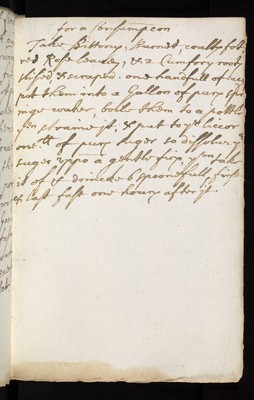 for a Consumpcon
Take Bittony, Burnet, coultsfoot
red Rose leaves, & 2 Cumfory roots
sliced & scraped. one handfull of
put them into a Gallon of pure spr
inge water, boile them to a pottle
straine it, & put to yt liccor
one of pure suger so dissolve ye
suger upon a gentle fire, yn take
it of & drincke 6 spoonefulls first
& last fast one houre after it